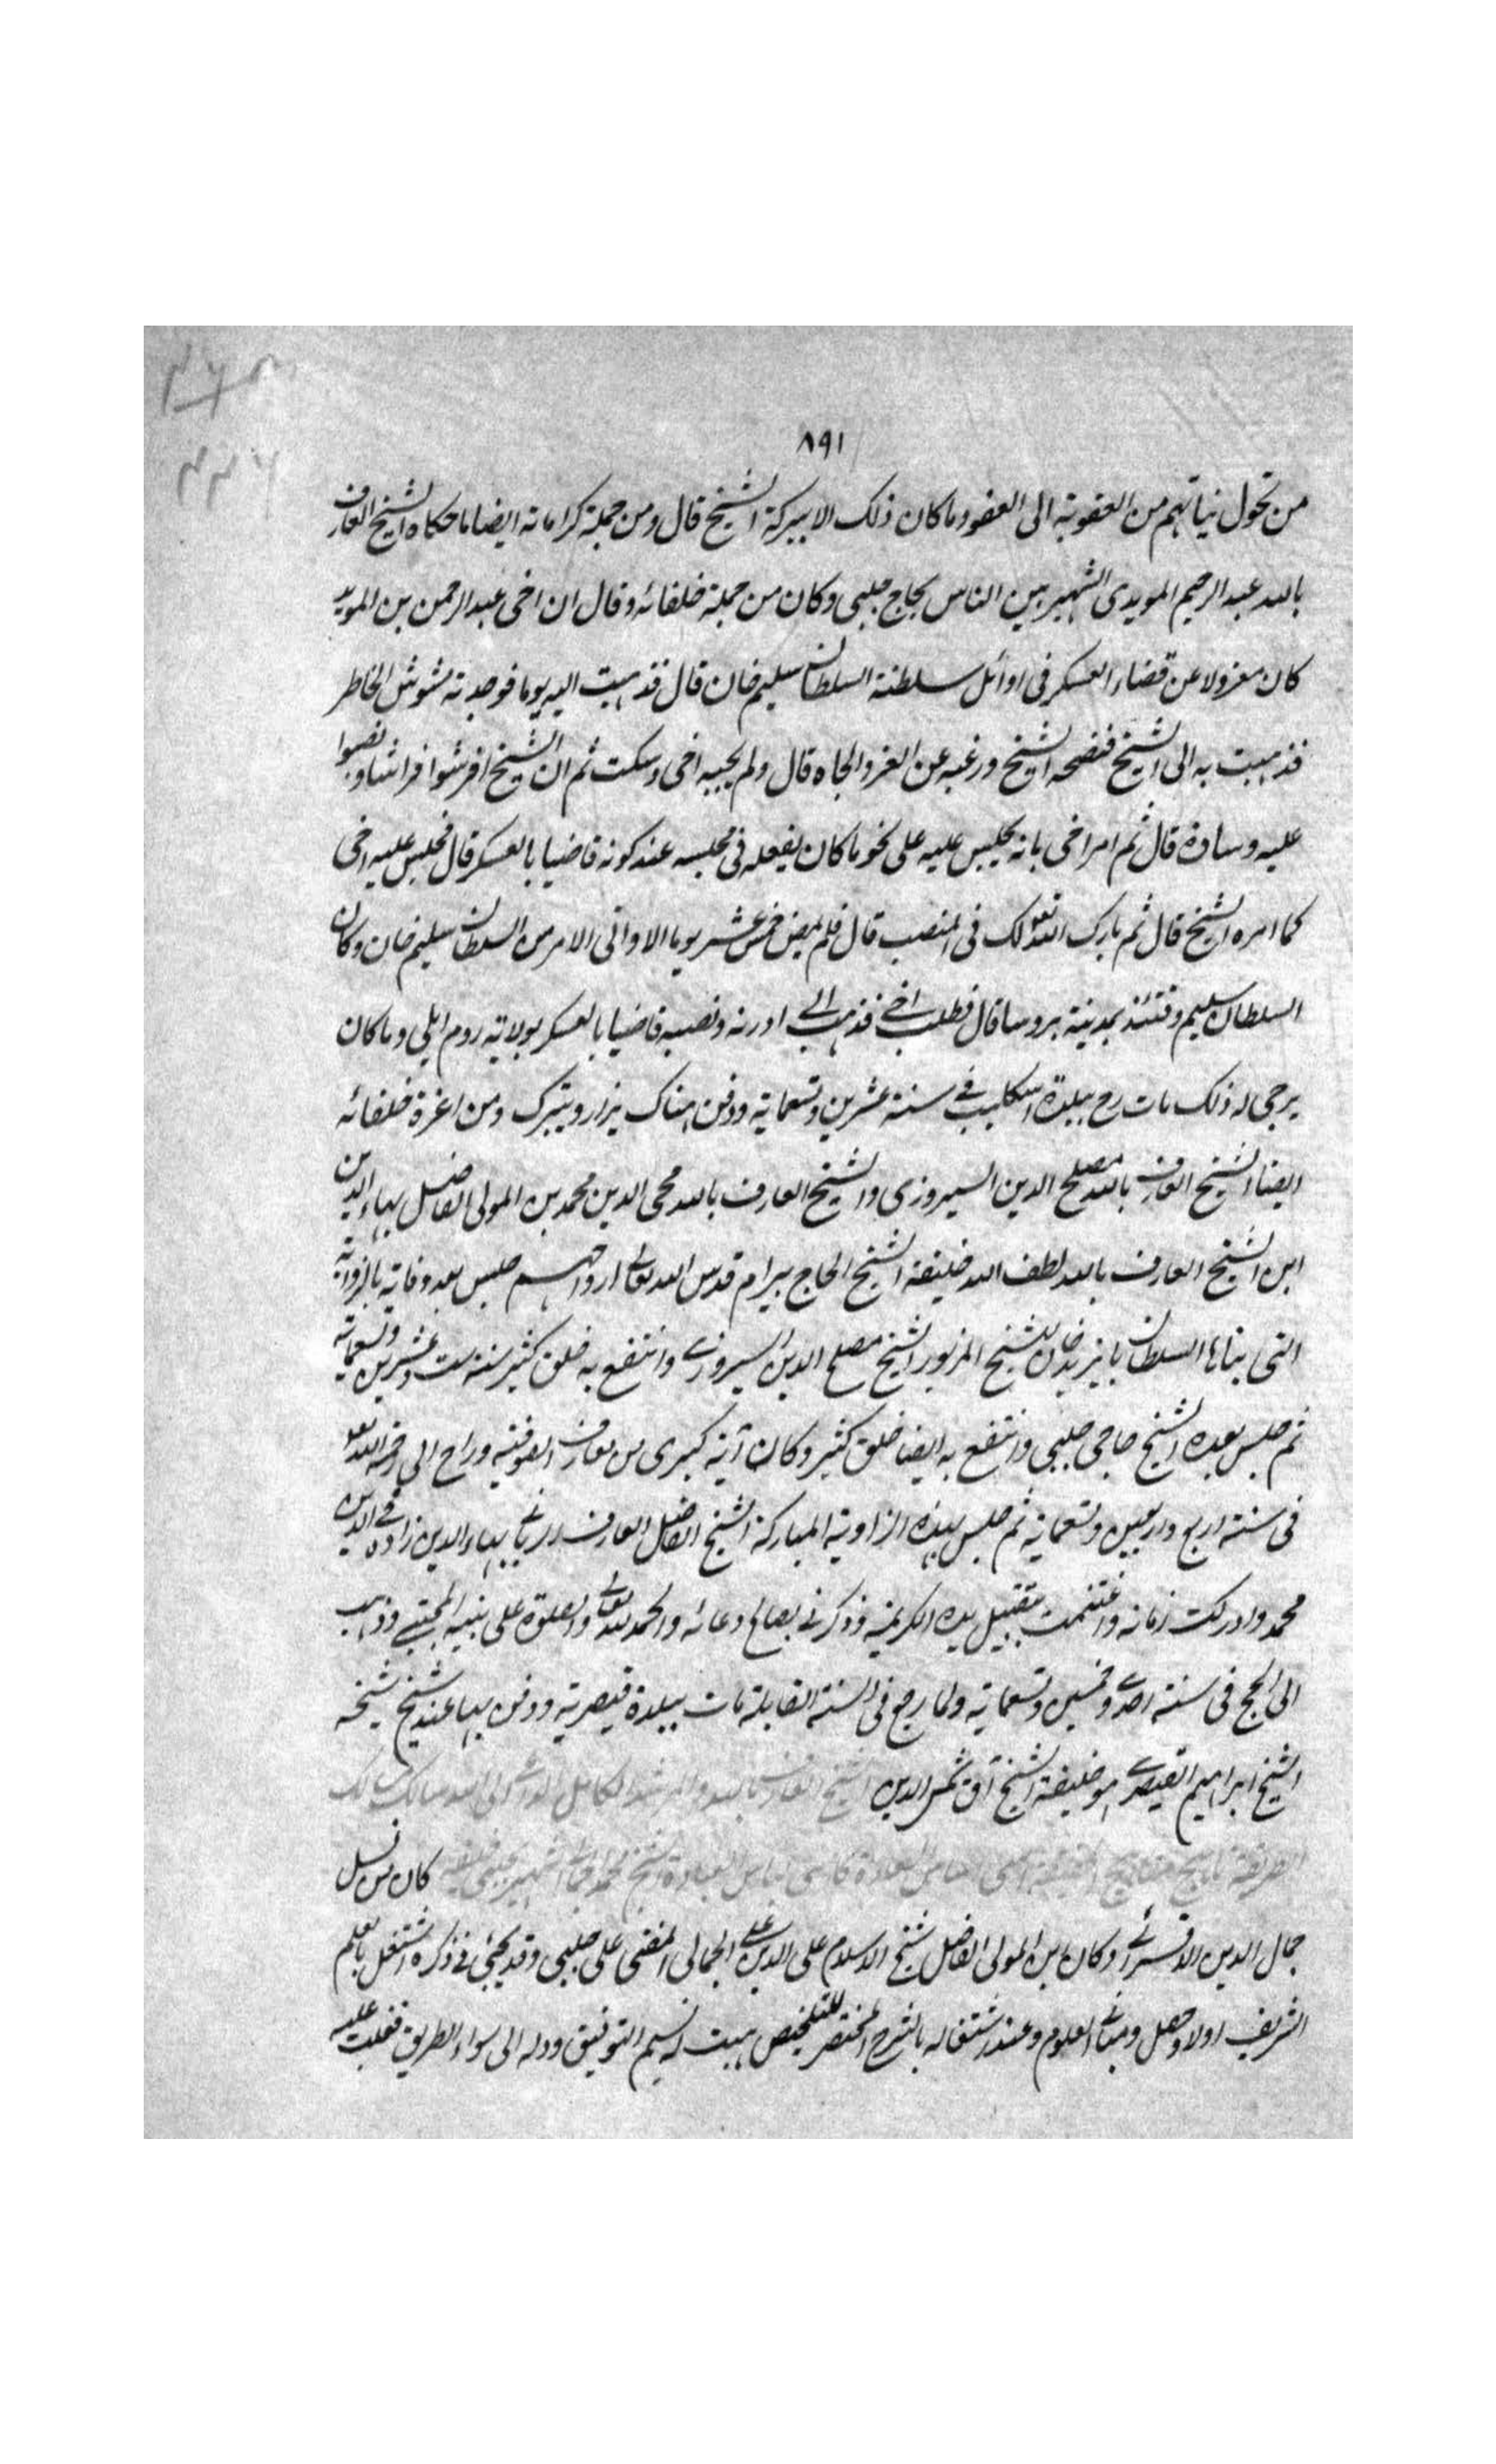 ٨٩١
من تحول نياتهم من العقوبة الى العفو وما كان ذلك الا ببركة الشيخ قال ومن جملة كراماته ايضا ما حكاه الشيخ العارف
بالله عبد الرحيم المويدى الشهير بين الناس بحاج چلبى وكان من جملة خلفائه وقال ان اخى عبد الرحمن بن المويد
كان معزولا عن قضاء العسكر فى اوائل سلطنة السلطان سليم خان قال فذهبت اليه يوما فوجدته مشوش الخاطر
فذهبت به الى الشيخ فنصحه الشيخ ورغبه عن العز والجاه قال ولم يجبه اخى وسكت ثم ان الشيخ افرشوا فراشا ونصبوا
عليه وسادة قال ثم امر اخى بانه يجلس عليه على نحو ما كان يفعله فى مجلسه عند كونه قاضيا بالعسكر قال فجلس عليه اخى
كما امره الشيخ قال ثم بارك الله تعالى لك فى المنصب قال فلم يمض خمس عشر يوما الا واتى الامر من السلطان سليم خان وكان
السلطان سليم وقتئذ بمدينة بروسا قال فطلب اخى فذهب الى ادرنه ونصبه قاضيا بالعسكر بولاية روم ايلى وما كان
يرجى له ذلك مات رح ببلدة اسكليب فى سنة عشرين وتسعماية ودفن هناك يزار ويتبرك ومن اعزة خلفائه
ايضا الشيخ العارف بالله مصلح الدين السيروزى والشيخ العارف بالله محى الدين محمد بن المولى الفاضل بهاء الدين
ابن الشيخ العارف بالله لطف الله خليفة الشيخ الحاج بيرام قدس الله تعالى ارواحهم جلس بعد وفاته بالزواية
التى بناها السلطان بايزيد خان للشيخ المزبور الشيخ مصلح الدين السيروزى وانتفع به خلق كثير سنة ست وعشرين وتسعماية
ثم جلس بعده الشيخ حاجى چلبى وانتفع به ايضا خلق كثير وكان آية كبرى من معارف الصوفية وراح الى رحمة الله تعالى
فى سنة اربع واربعين وتسعماية ثم جلس بهذه الزاوية المباركة الشيخ الفاضل العارف الربانى بهاء الدين زاده محى الدين
محمد وادركت زمانه واغتنمت بتقبيل يده الكريمة وذكرنى بصالح دعائه والحمد لله تعالى والصلوة على نبيه المجتبى وذهب
الى الحج فى سنة احدى وخمسين وتسعماية ولما رجع فى السنة القابلة مات ببلدة قيصرية ودفن بها عند شيخ شيخه
الشيخ ابراهيم القيصرى هو خليفة الشيخ آق شمس الدين الشيخ العارف بالله والمرشد الكامل الداعى الى الله سالك مسالك
الطريقة
كان من نسل
جمال الدين الاقسرائى وكان ابن المولى الفاضل شيخ الاسلام على الدين على الجمالى المفتى على چلبى وقد يجئ فى ذكره اشتغل بالعلم
الشريف اولا وحصل ومبانى العلوم وعند اشتغاله بالشرح المختصر للتلخيص هبت له نسيم التوفيق ودله الى سواء الطريق فغلبت عليه